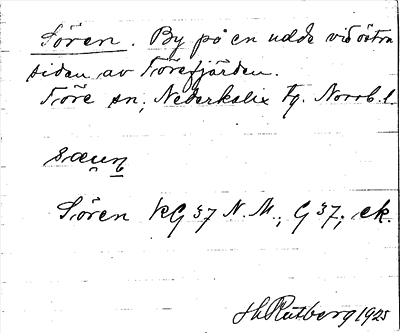 Sören. By på en udde vid östra
siden av Törefjärden.
Töre sn, Nederkalix tg. Norrb. l.
Sören KG 37 N. M.; G 37; ek.
H Rutberg 1925